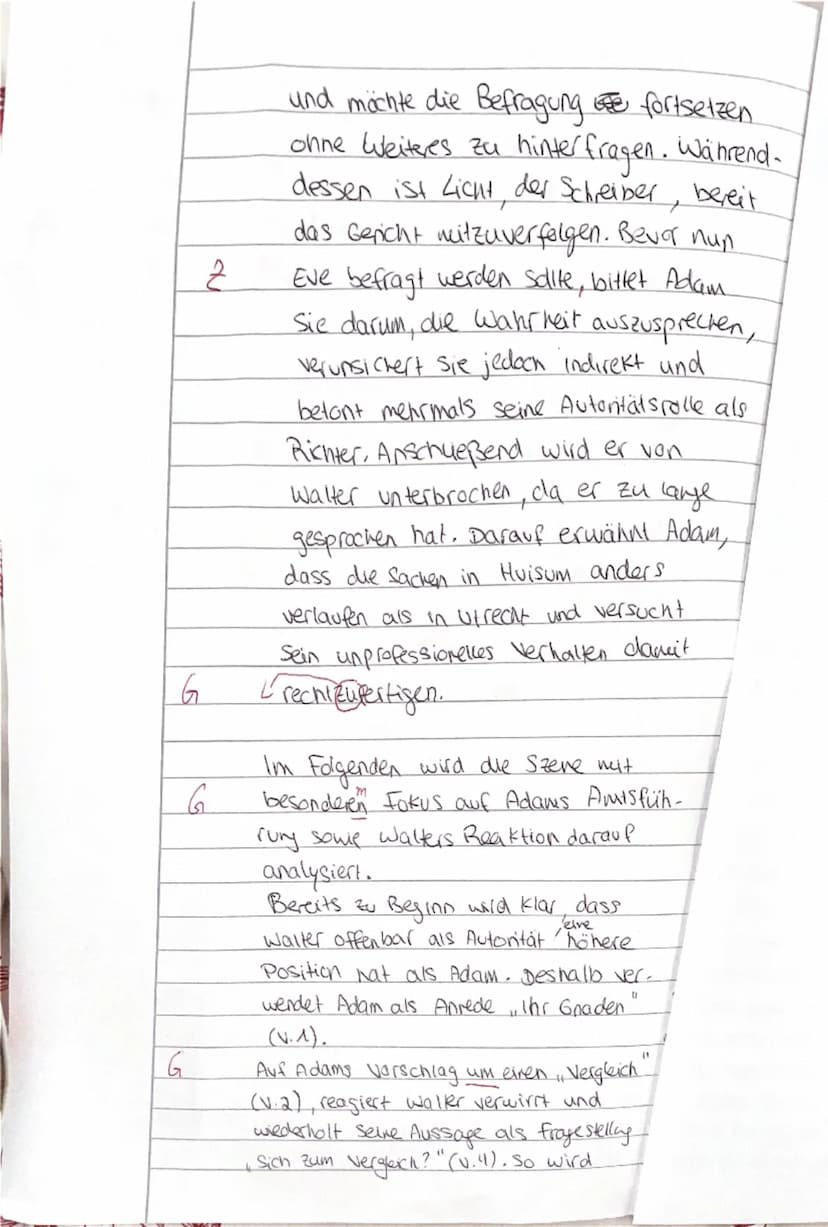 und möchte die Befragung fortsetzen
ohne Weiteres zu hinterfragen. Während-
dessen ist Licht, der Schreiber, bereit
das Gericht mitzuverfolgen. Bevor nun
Z Eve befragt werden sollte, bittet Adam
Sie darum, die Wahrheit auszusprechen,
verunsichert sie jedoch indirekt und
betont mehrmals seine Autoritätsrolle als
Richter. Anschließend wird er von
Walter unterbrochen, da er zu lange
gesprochen hat. Darauf erwähnt Adam,
dass die Sachen in Huisum anders
verlaufen als in Utrecht und versucht
Sein unprofessionelles Verhalten damit
G rechtzufertigen.
Im Folgenden wird die Szene mit
G besonderen m Fokus auf Adams Amtsfüh-
rung sowie Walters Reaktion darauf
analysiert.
Bereits zu Beginn wird klar, dass
Walter offenbar als Autorität eine höhere
Position hat als Adam. Deshalb ver-
wendet Adam als Anrede „Ihr Gnaden"
(V.1).
G Auf Adams Vorschlag um einen „Vergleich"
(V.2), reagiert Walter verwirrt und
wiederholt seine Aussage als Fragestellung
„Sich zum Vergleich?" (V.4). So wird